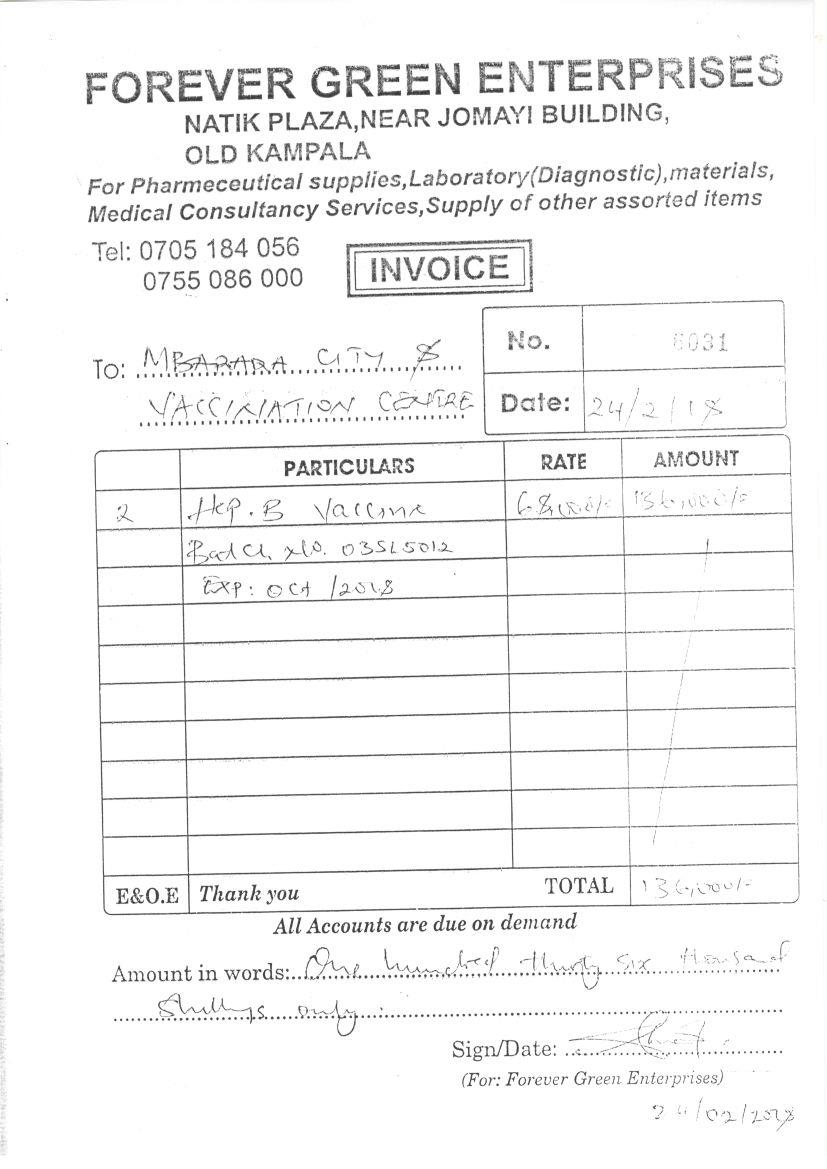 FOREVER GREEN ENTERPRISES
NATIK PLAZA,NEAR JOMAYI BUILDING,
OLD KAMPALA
For Pharmeceutical supplies,Laboratory(Diagnostic),materials,
Medical Consultancy Services,Supply of other assorted items
Tel: 0705 184 056
0755 086 000
INVOICE
No. 6031
To: MBARARA CITY
VACCINATION CENTRE
Date: 24/2/18
PARTICULARS RATE AMOUNT
2 Hep. B Vaccine 68,000/= 136,000/=
Batch No. 03SL5012
Exp: Oct /2018
E&O.E Thank you TOTAL 136,000/-
All Accounts are due on demand
Amount in words: One hundred thirty six thousand
Shillings only.
Sign/Date:
(For: Forever Green Enterprises)
24/02/2018